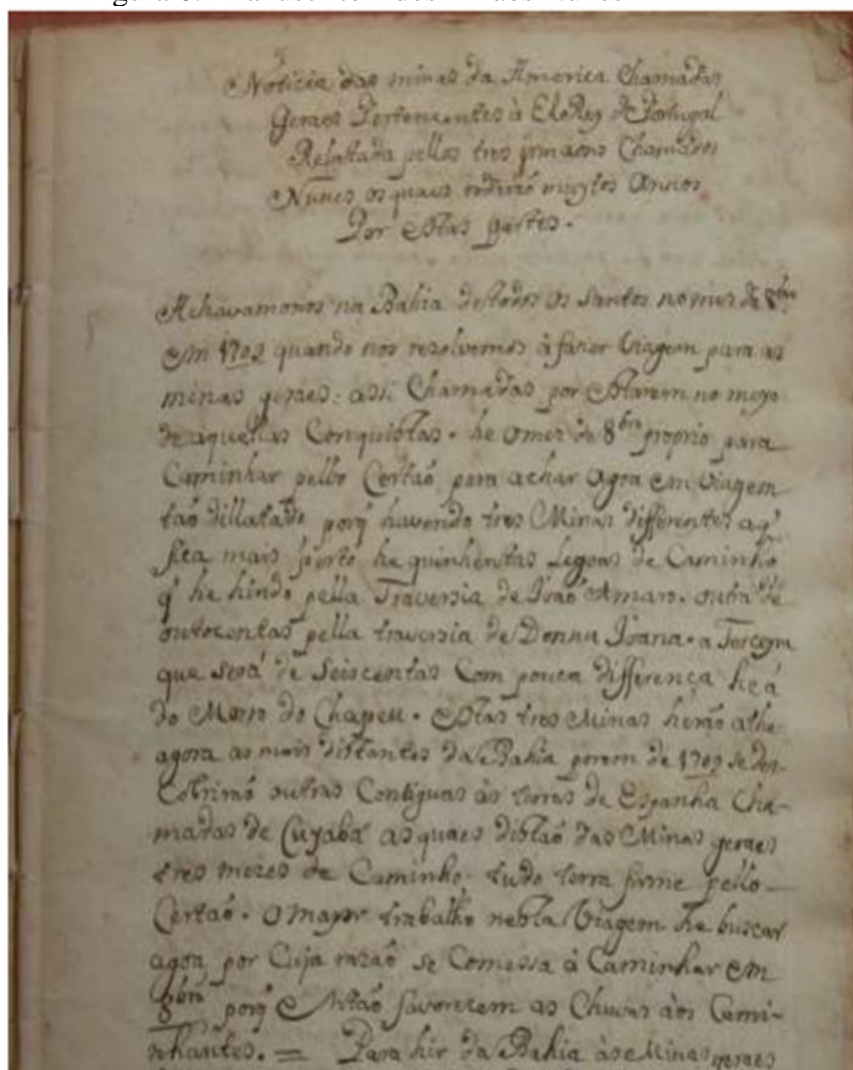 Noticia das minas da America Chamadas
Geraes Pertencentes à ElRey de Portugal
Relatada pellos tres jrmaons Chamados
Nunes os quaes rodaraõ muytos Annos
Por estas partes.
Achavamonos na Bahia de todos os Santos no mes de 8bro
em 1709 quando nos rezolvemos à fazer Viagem para as
minas geraes: asi Chamadas por estarem no meyo
de aquellas Conquistas. he o mes de 8bro proprio para
Caminhar pello Certaõ para achar agoa em Viagem
taõ dillatada porq̃ havendo tres Minas differentes a q̃
fica mais perto he quinhentas Legoas de Caminho
q̃ he hindo pella Travessia de Joaõ Amaro. outra de
outocentas pella travessia de Donna Joana. a Terceyra
que será de Seiscentas Com pouca differença he á
do Morro do Chapeu. Estas tres Minas heraõ athe
agora as mais distantes da Bahia porem de 1709 se des-
Cobriraõ outras Contiguas às terras de Espanha Cha-
madas de Cuyabá as quaes distaõ das Minas geraes
tres mezes de Caminho. tudo terra firme pello
Certaõ. O mayor trabalho nesta Viagem he buscar
agoa, por Cuja razaõ se Comessa à Caminhar em
8bro porq̃ Entaõ favorecem as Chuvas aos Cami-
nhantes. = Para hir da Bahia às Minas geraes